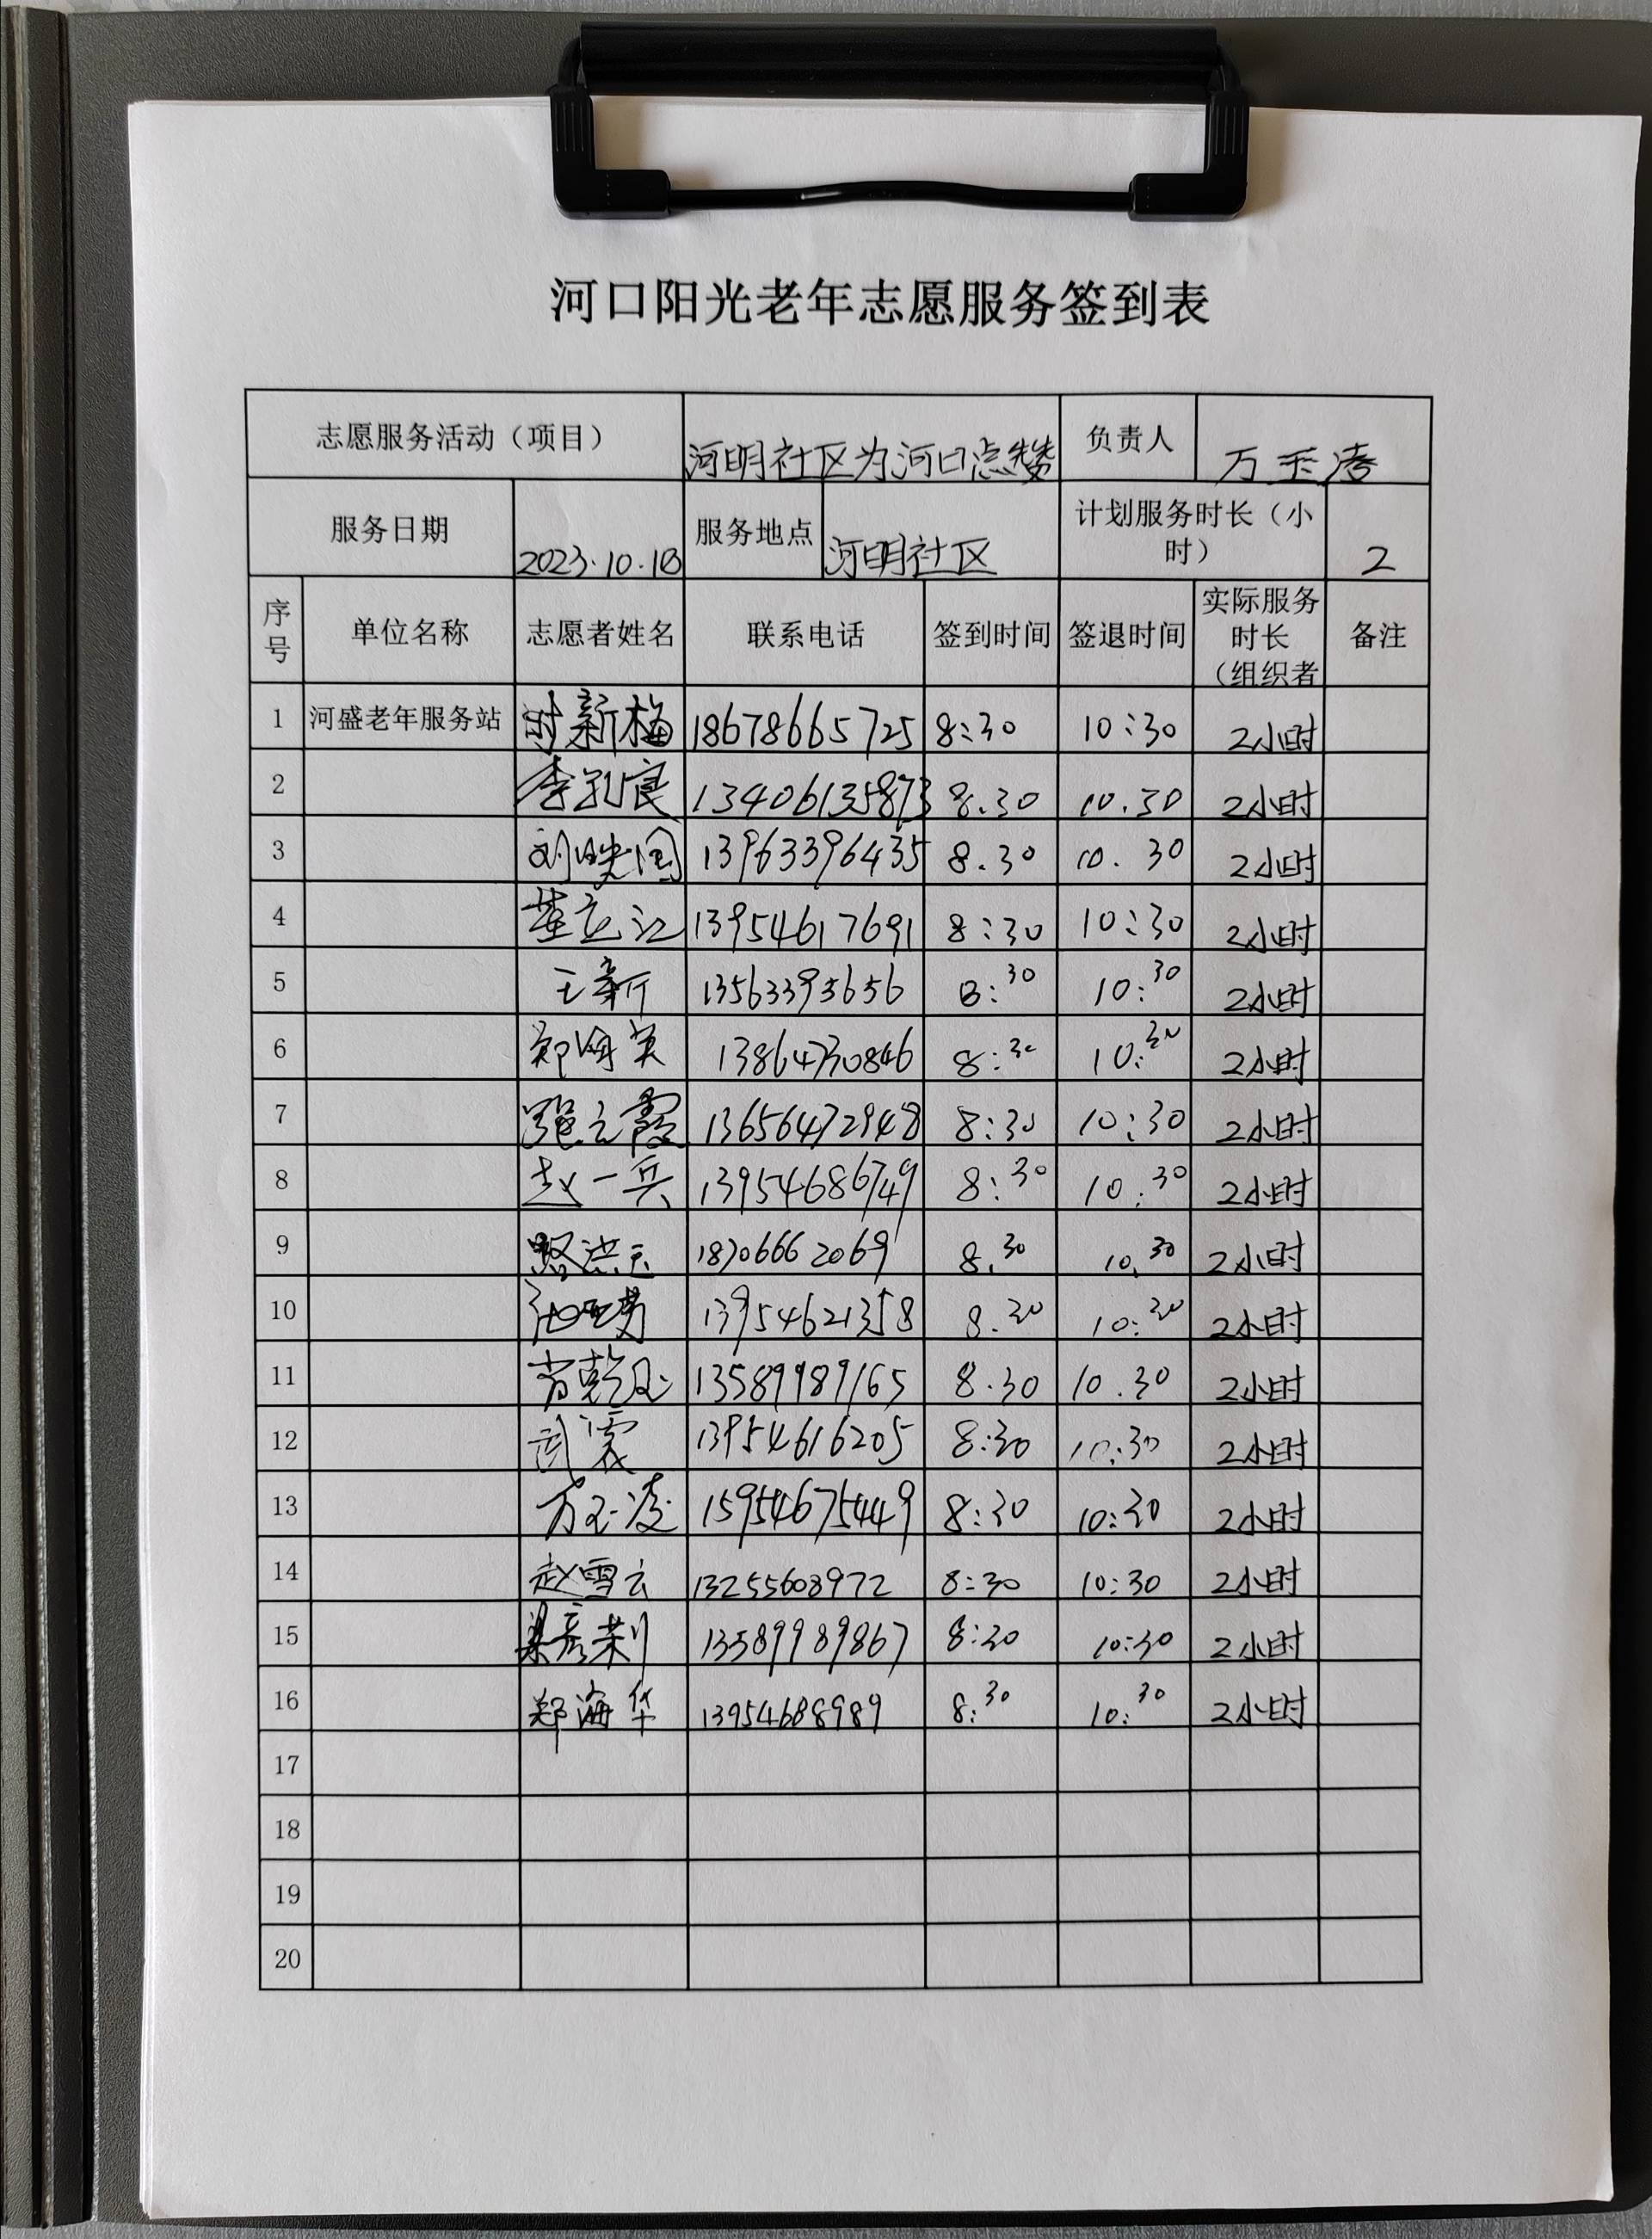 河口阳光老年志愿服务签到表
志愿服务活动（项目） 河明社区为河口点赞 负责人 万玉凌
服务日期 2023.10.18 服务地点 河明社区 计划服务时长（小时） 2
序号 单位名称 志愿者姓名 联系电话 签到时间 签退时间 实际服务时长（组织者 备注
1 河盛老年服务站 时新梅 18678665725 8:30 10:30 2小时
2 13406135873 8.30 10.30 2小时
3 13963396435 8.30 10.30 2小时
4 董立江 13954617691 8:30 10:30 2小时
5 王新 13563395656 8:30 10:30 2小时
6 郑海英 13864730846 8:30 10:30 2小时
7 张立霞 13656472948 8:30 10:30 2小时
8 赵一兵 13954686749 8:30 10:30 2小时
9 骆洪玉 18706662069 8.30 10.30 2小时
10 13954621358 8.30 10:30 2小时
11 13589989165 8.30 10.30 2小时
12 武霞 13954616205 8:30 10:30 2小时
13 万玉凌 15954675449 8:30 10:30 2小时
14 赵雪云 13255608972 8:30 10:30 2小时
15 梁彦荣 13589989867 8:30 10:30 2小时
16 郑海华 13954688989 8:30 10:30 2小时
17
18
19
20